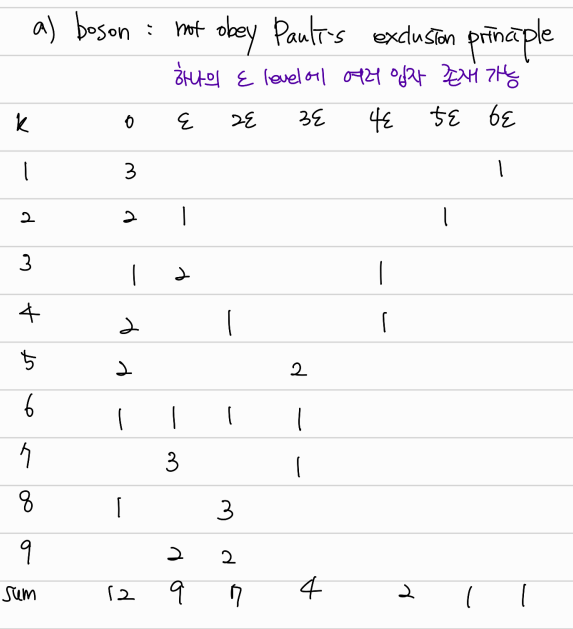 a) boson : not obey Pauli's exclusion principle
하나의 ε level에 여러 입자 존재 가능
K 0 ε 2ε 3ε 4ε 5ε 6ε
1 3 1
2 2 1 1
3 1 2 1
4 2 1 1
5 2 2
6 1 1 1 1
7 3 1
8 1 3
9 2 2
sum 12 9 7 4 2 1 1